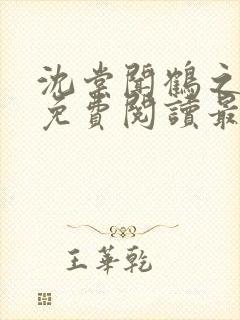 沈棠聞鶴之
免費閱讀最
王華乾